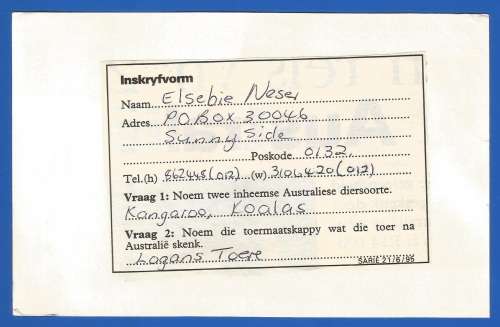 Inskryfvorm
Naam Elsebie Neser
Adres P O BOX 30046
Sunny Side
Poskode 0132
Tel. (h) 862448 (012) (w) 3106420 (012)
Vraag 1: Noem twee inheemse Australiese diersoorte.
Kangaroo, Koalas
Vraag 2: Noem die toermaatskappy wat die toer na
Australië skenk.
Logans Toere
SARIE 21/6/95